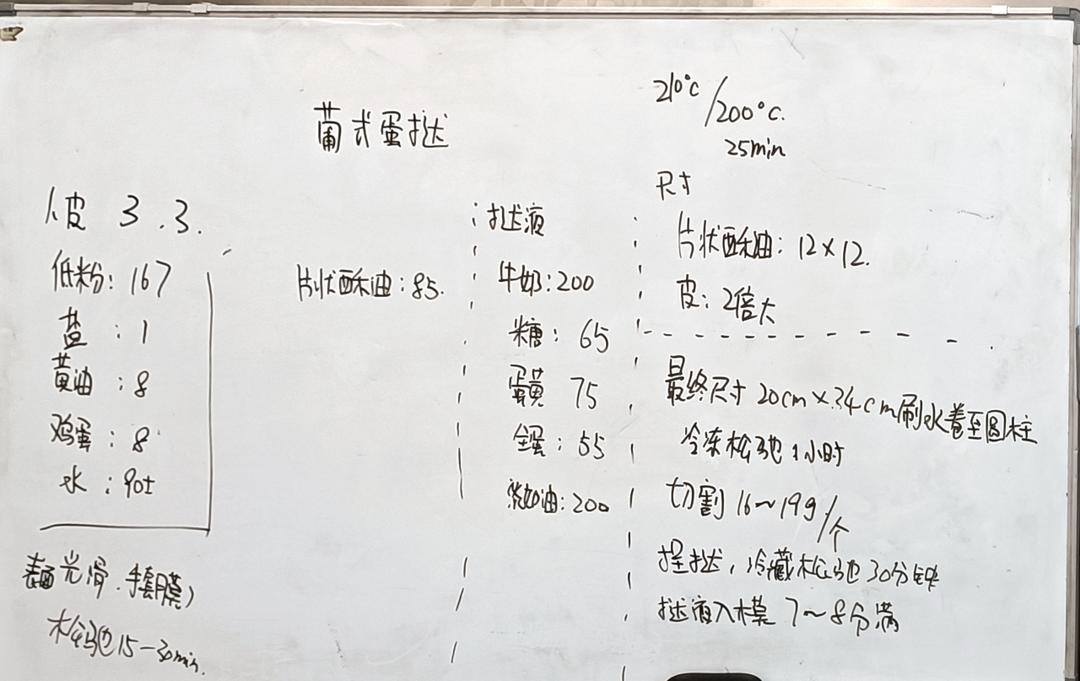 葡式蛋挞
皮 3.3.
低粉：167
盐：1
黄油：8
鸡蛋：8
水：90±
表面光滑.手套膜)
松弛15-30min.
片状酥油：85.
挞液
牛奶：200
糖：65
蛋黄 75
全蛋：55
淡奶油：200
210°C/200°C.
25min
尺寸
片状酥油：12×12.
皮：2倍大
最终尺寸 20cm×34cm刷水卷至圆柱
冷冻松弛1小时
切割16~19g/个
捏挞，冷藏松弛30分钟
挞液入模 7~8分满